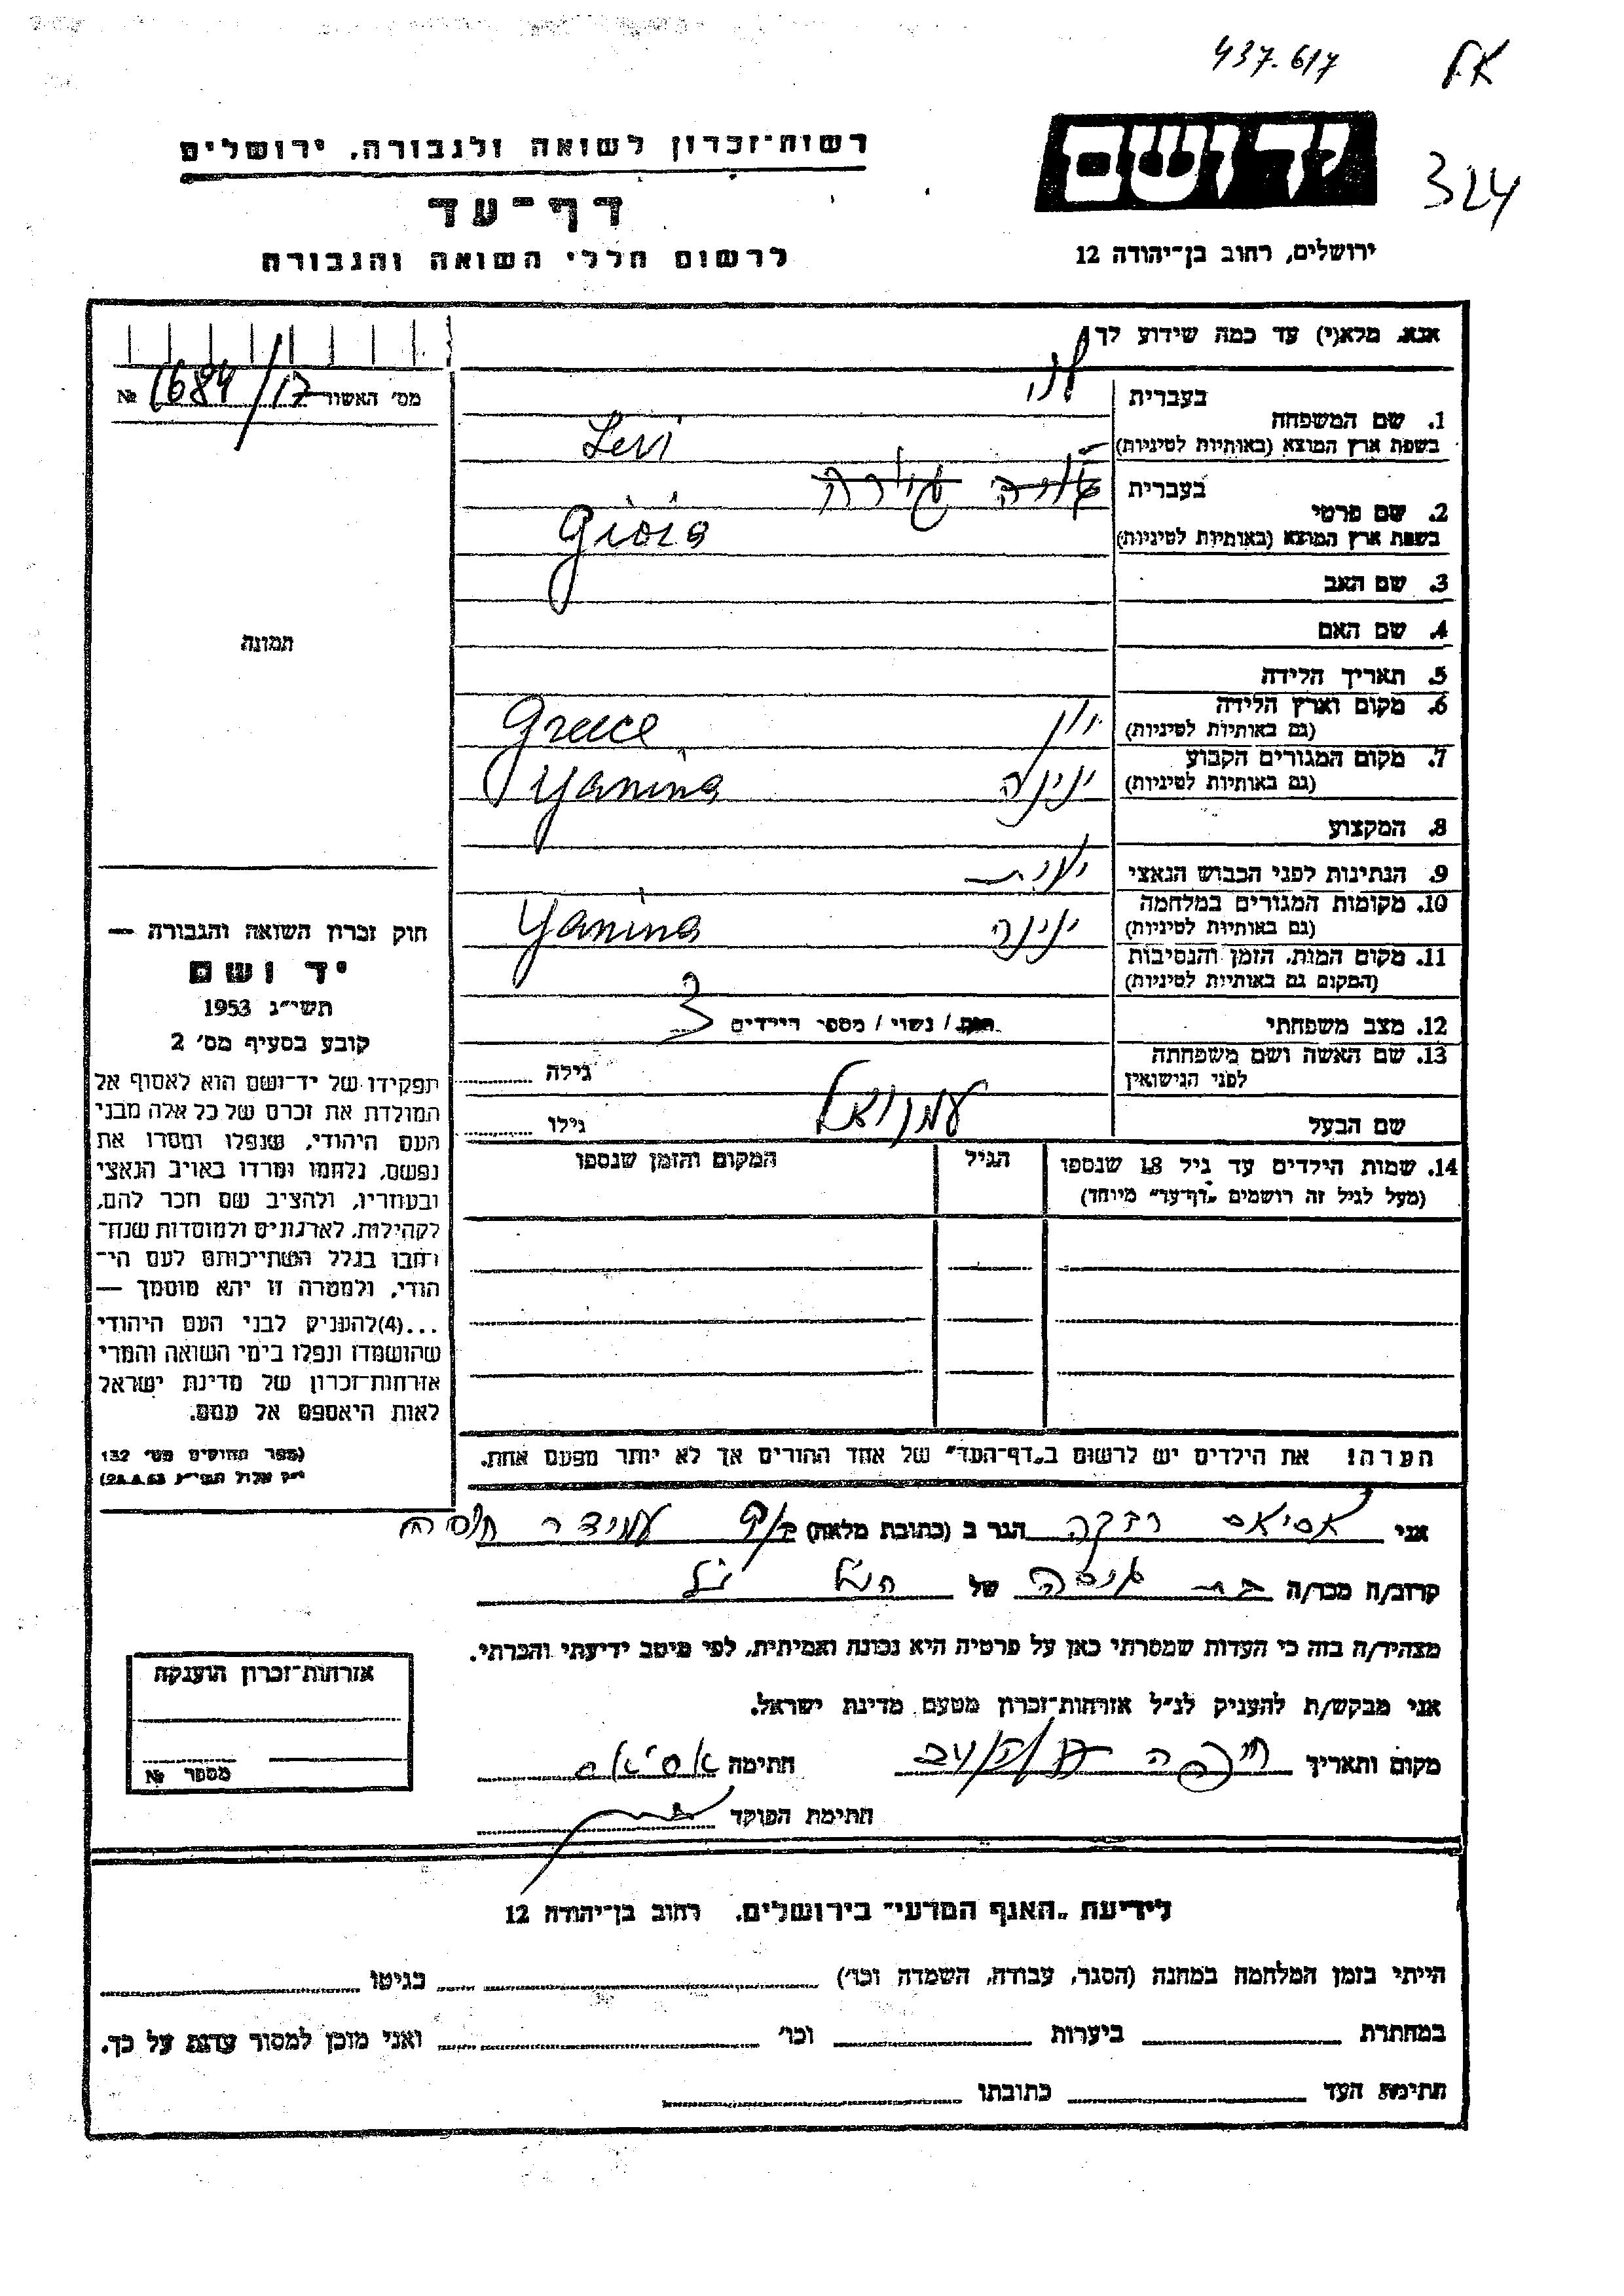 437.617
א.ל
רשות־זכרון לשואה ולגבורה, ירושלים
יד ושם
324
דף־עד
לרשום חללי השואה והגבורה
ירושלים, רחוב בן־יהודה 12
אנא, מלא(י) עד כמה שידוע לך
מס' האשור 1684/17 №
בעברית לוי
1. שם המשפחה
בשפת ארץ המוצא (באותיות לטיניות) Levi
בעברית
2. שם פרטי
בשפת ארץ המוצא (באותיות לטיניות) Gioia
3. שם האב
4. שם האם
תמונה
5. תאריך הלידה
6. מקום וארץ הלידה יוון Greece
(גם באותיות לטיניות)
7. מקום המגורים הקבוע ינינה Yanina
(גם באותיות לטיניות)
8. המקצוע
9. הנתינות לפני הכבוש הנאצי יונית
10. מקומות המגורים במלחמה ינינה Yanina
(גם באותיות לטיניות)
11. מקום המות, הזמן והנסיבות
(המקום גם באותיות לטיניות)
12. מצב משפחתי רווק / נשוי / מספר הילדים 3
13. שם האשה ושם משפחתה גילה
לפני הנישואין
שם הבעל עמנואל גילו
14. שמות הילדים עד גיל 18 שנספו הגיל המקום והזמן שנספו
(מעל לגיל זה רושמים „דף־עד” מיוחד)
הערה! את הילדים יש לרשום ב„דף־העד” של אחד ההורים אך לא יותר מפעם אחת.
חוק זכרון השואה והגבורה —
יד ושם
תשי״ג 1953
קובע בסעיף מס' 2
תפקידו של יד־ושם הוא לאסוף אל
המולדת את זכרם של כל אלה מבני
העם היהודי, שנפלו ומסרו את
נפשם, נלחמו ומרדו באויב הנאצי
ובעוזריו, ולהציב שם וזכר להם,
לקהילות, לארגונים ולמוסדות שנח־
רבו בגלל השתייכותם לעם הי־
הודי, ולמטרה זו יהא מוסמך —
...(4) להעניק לבני העם היהודי
שהושמדו ונפלו בימי השואה והמרי
אזרחות־זכרון של מדינת ישראל
לאות היאספם אל עמם.
(ספר החוקים מס' 132
י״ז אלול תשי״ג 28.8.53)
אני אסיאס רבקה הגר ב (כתובת מלאה) עמידר
קרוב/ה מכר/ה בת של הנ״ל
מצהיר/ה בזה כי העדות שמסרתי כאן על פרטיה היא נכונה ואמיתית, לפי מיטב ידיעתי והכרתי.
אני מבקש/ת להעניק לנ״ל אזרחות־זכרון מטעם מדינת ישראל.
מקום ותאריך חיפה חתימה אסיאס
חתימת הפוקד
אזרחות־זכרון הוענקה
מספר №
לידיעת „האגף המדעי” בירושלים, רחוב בן־יהודה 12
הייתי בזמן המלחמה במחנה (הסגר, עבודה, השמדה וכו') בגיטו
במחתרת ביערות וכו' ואני מוכן למסור עדות על כך.
חתימת העד כתובתו